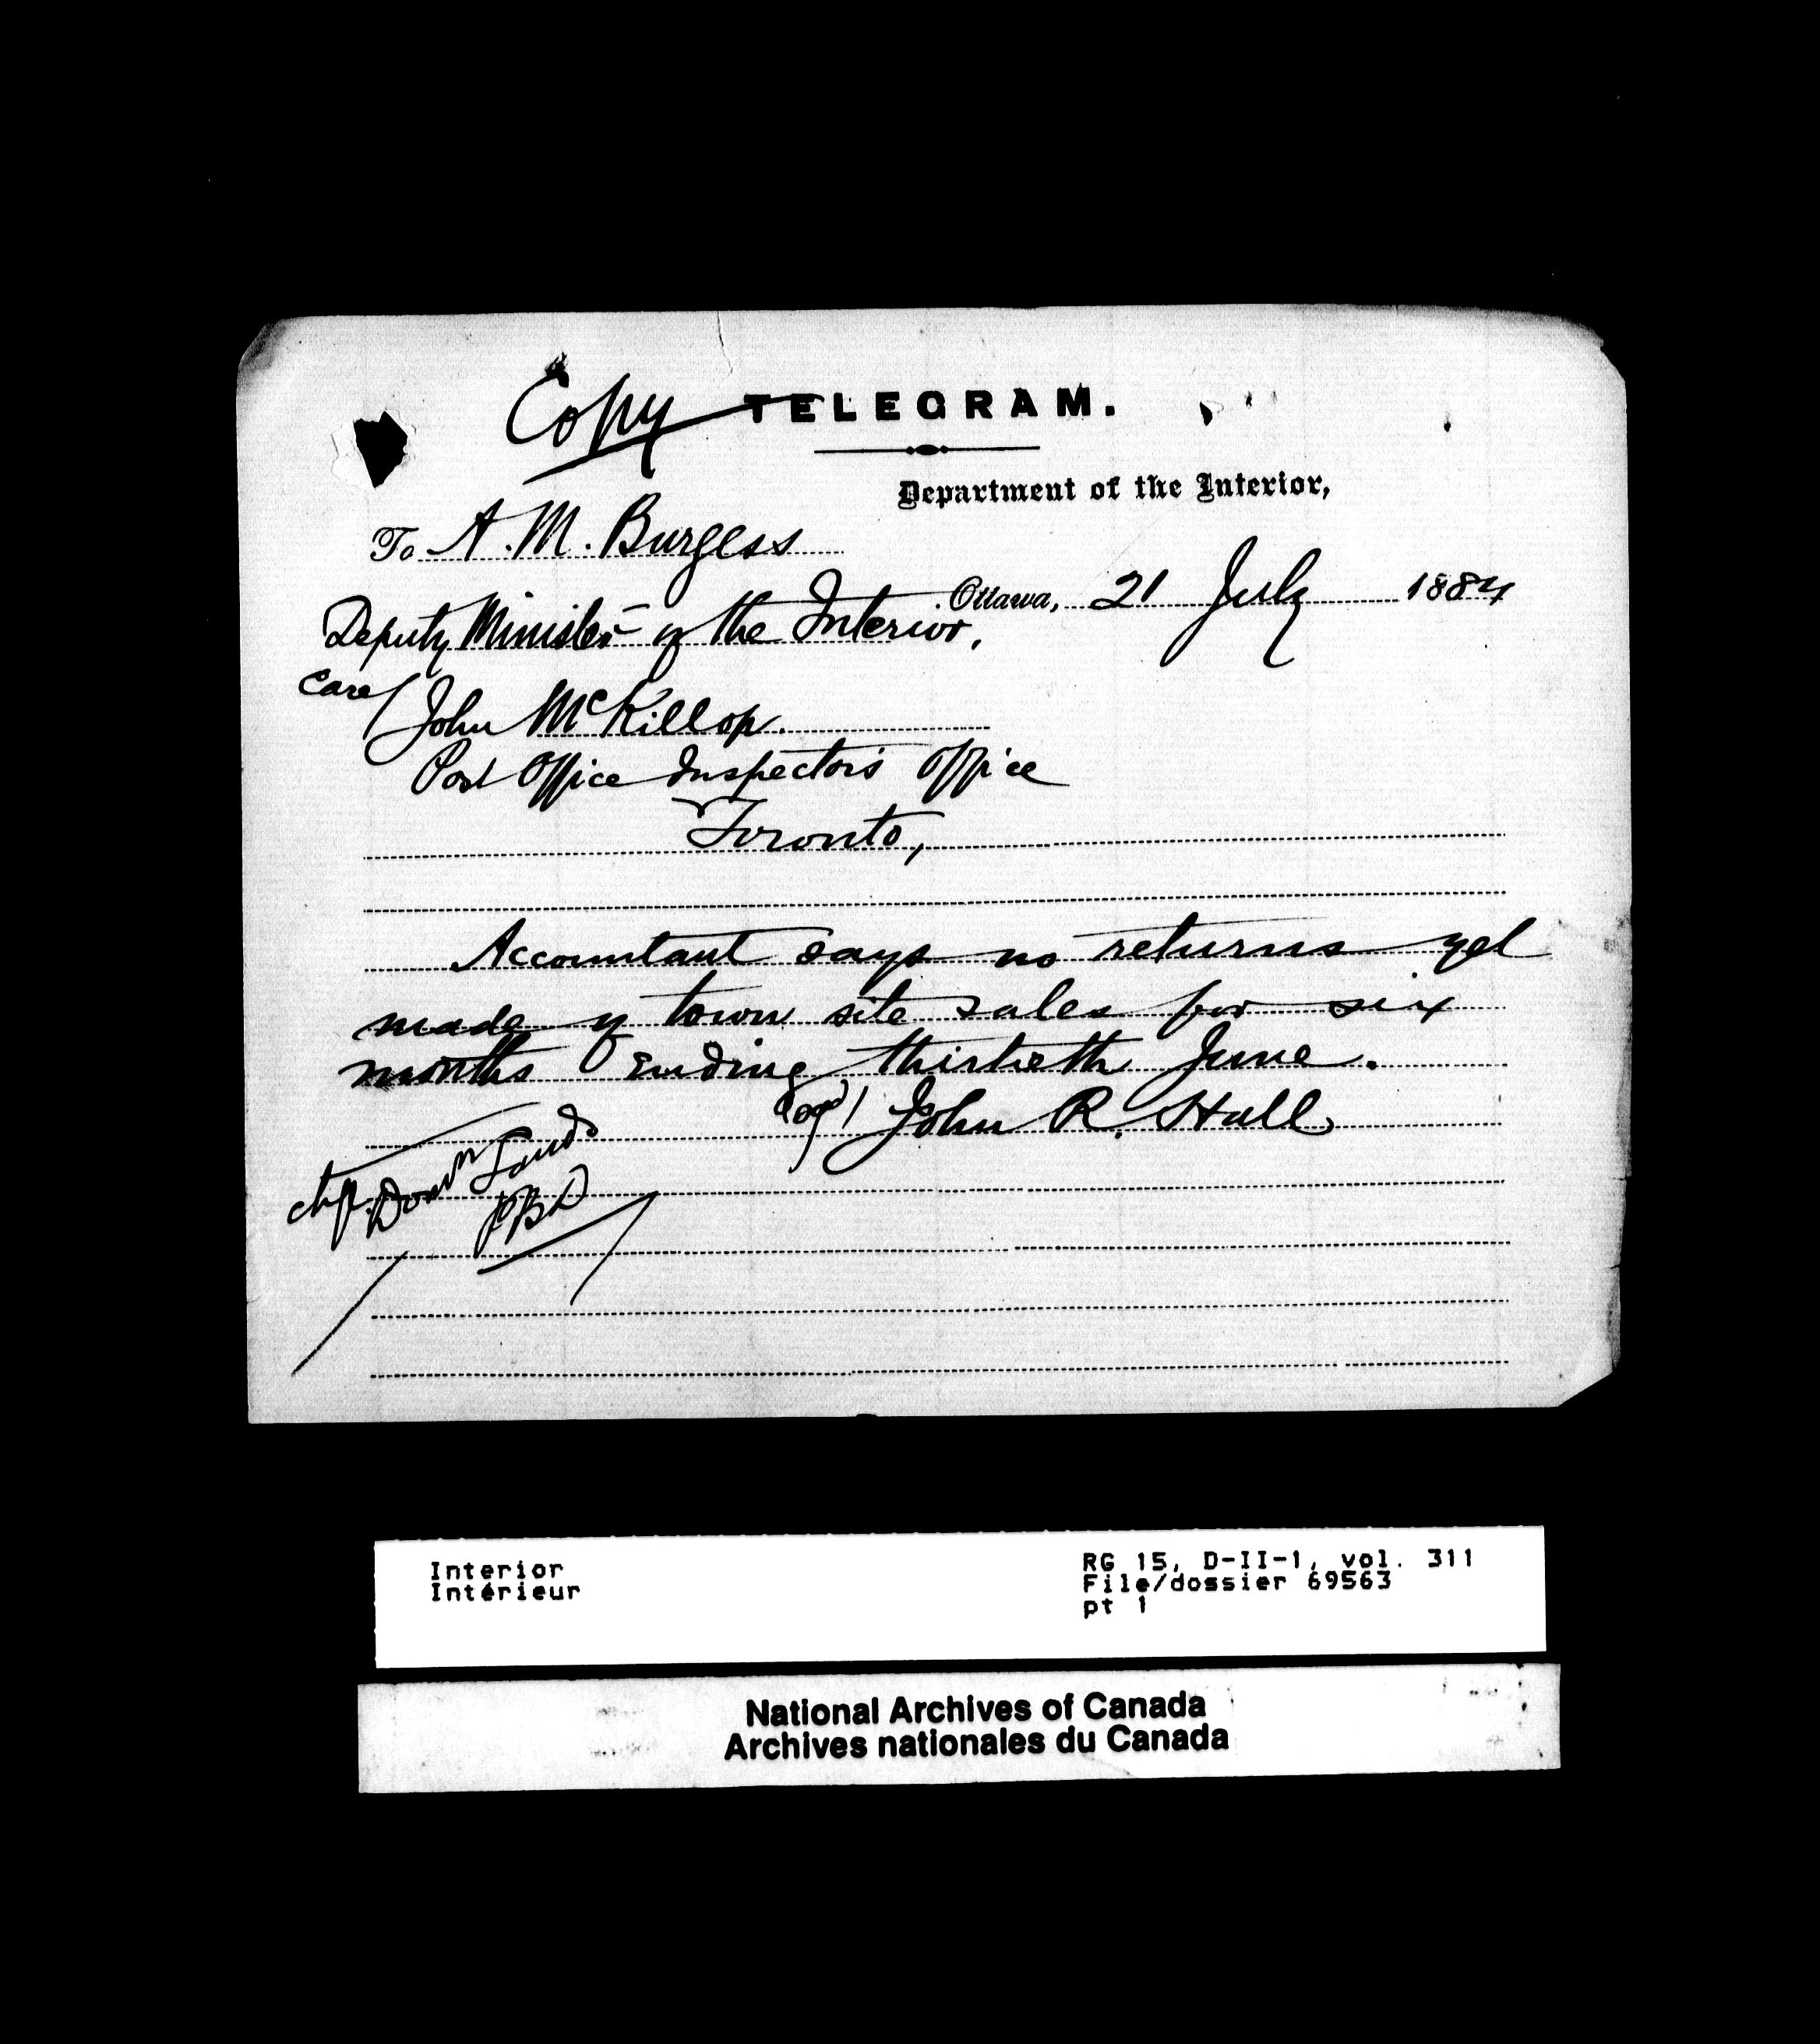 Copy TELEGRAM.
Department of the Interior,
To A. M. Burgess
Ottawa, 21 July 1884
Deputy Minister of the Interior,
Care/ John McKillop.
Post Office Inspector's Office
Toronto,
Accountant says no returns yet
made of town site sales for six
months Ending thirtieth June.
John R. Hall
Domn Lands
Interior
Intérieur
RG 15, D-II-1, vol. 311
File/dossier 69563
pt 1
National Archives of Canada
Archives nationales du Canada